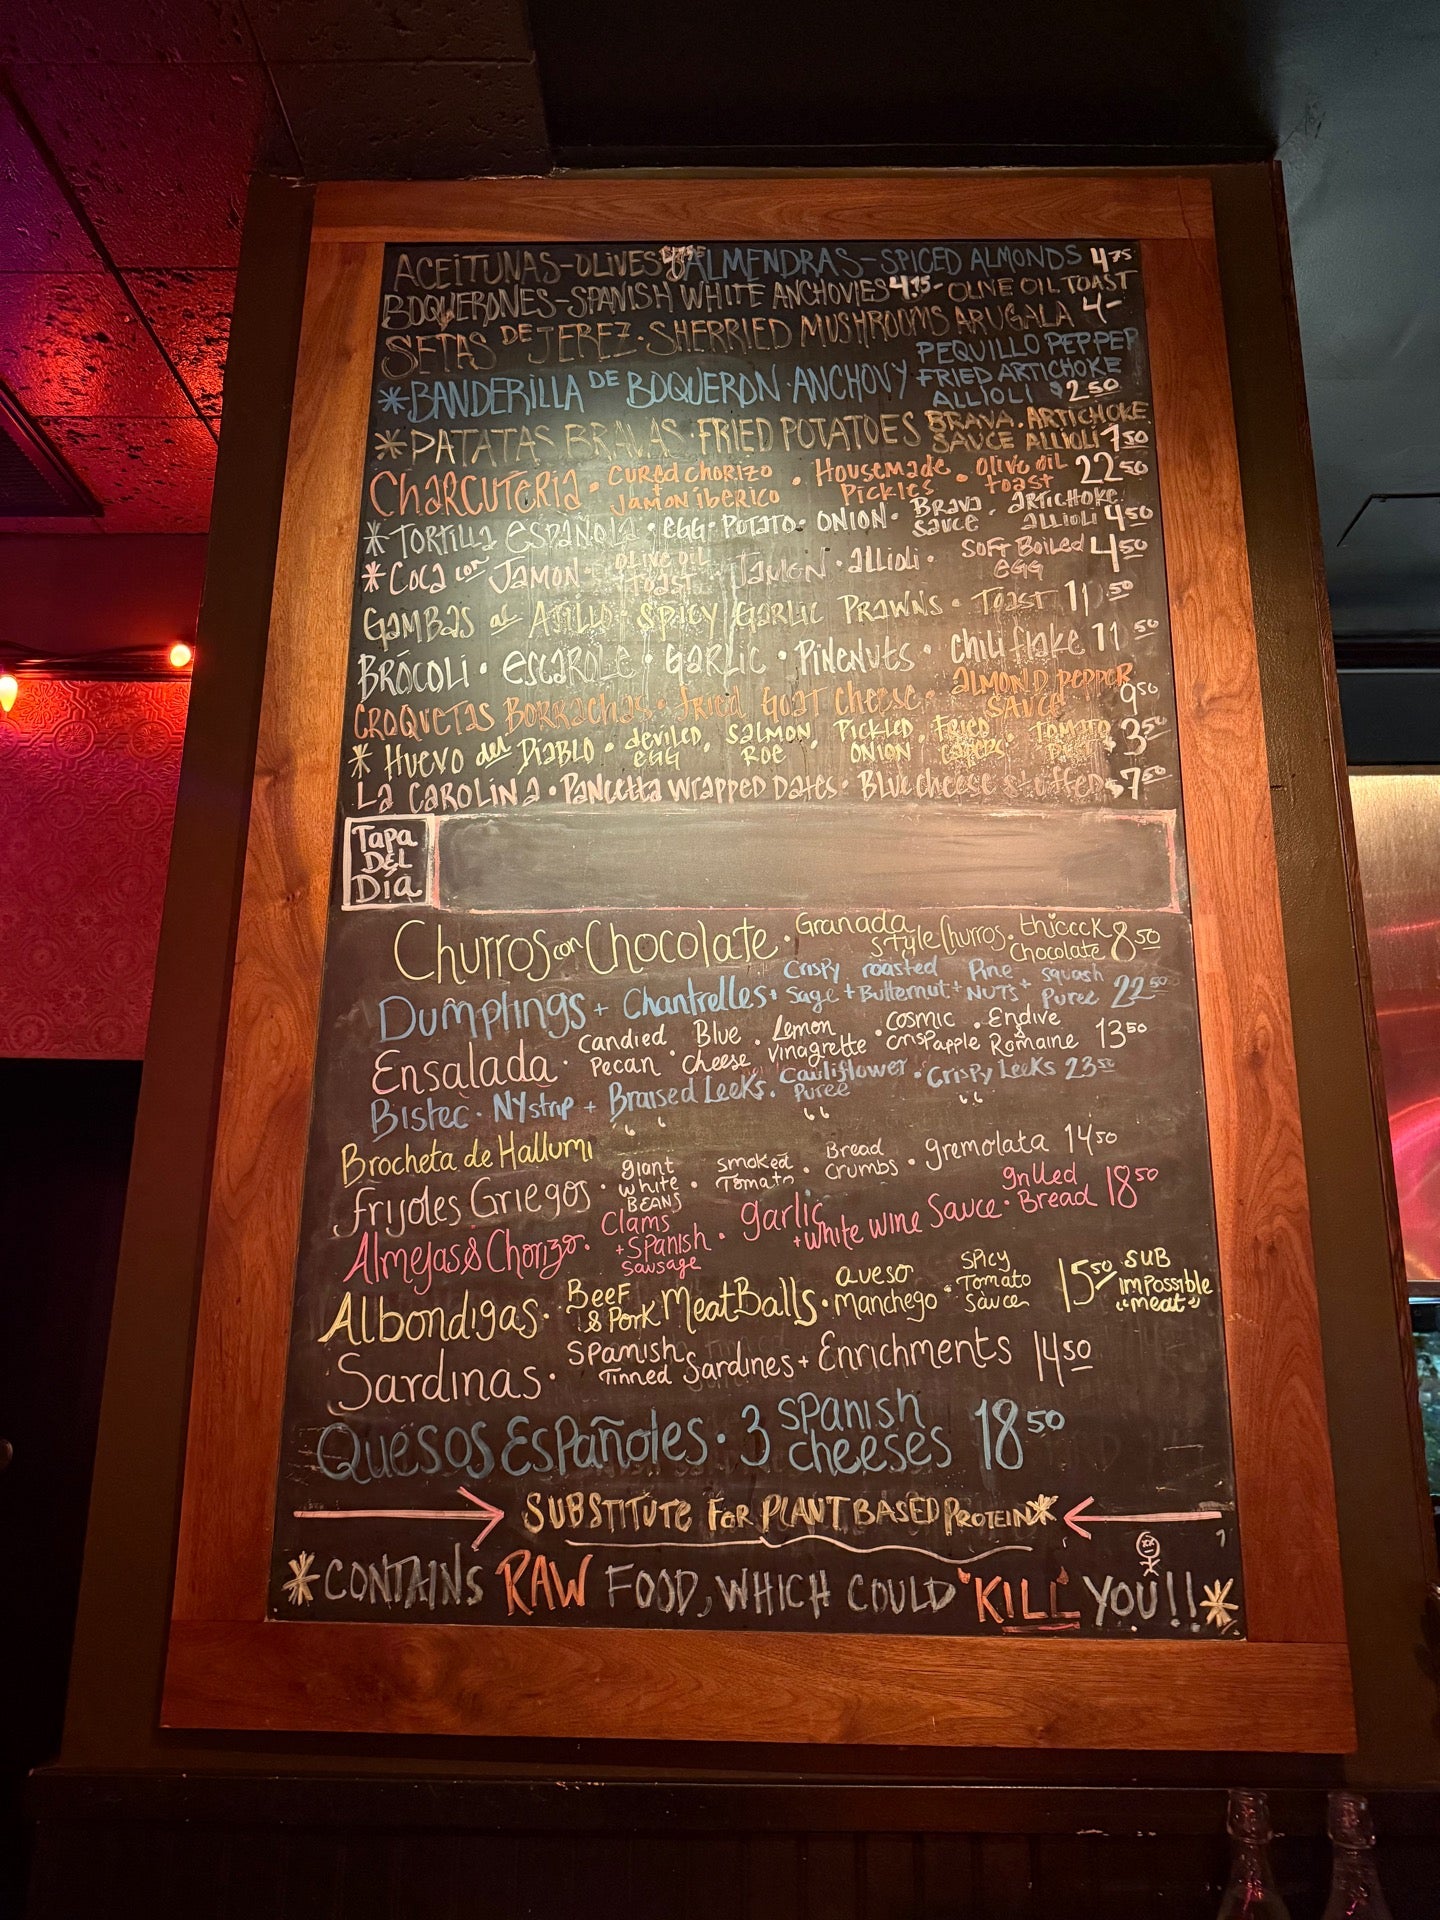 ACEITUNAS-OLIVES ALMENDRAS-SPICED ALMONDS 4.75
BOQUERONES-SPANISH WHITE ANCHOVIES 4.75- OLIVE OIL TOAST
SETAS DE JEREZ·SHERRIED MUSHROOMS ARUGALA 4-
*BANDERILLA DE BOQUERON·ANCHOVY PEQUILLO PEPPER
FRIED ARTICHOKE
ALLIOLI $2.50
*PATATAS BRAVAS·FRIED POTATOES BRAVA·ARTICHOKE
SAUCE ALLIOLI 7.50
CHARCUTERIA·CURED CHORIZO + JAMON IBERICO·HOUSEMADE PICKLES·OLIVE OIL TOAST 22.50
*TORTILLA ESPAÑOLA·EGG·POTATO·ONION·BRAVA SAUCE·ARTICHOKE ALLIOLI 4.50
*COCA con JAMON·OLIVE OIL TOAST·JAMON·ALLIOLI·SOFT BOILED EGG 4.50
GAMBAS al AJILLO·SPICY GARLIC PRAWNS·TOAST 11.50
BRÓCOLI·ESCAROLE·GARLIC·PINENUTS·CHILI FLAKE 11.50
CROQUETAS BORRACHAS·FRIED GOAT CHEESE·ALMOND PEPPER SAUCE 9.50
*HUEVO del DIABLO·DEVILED EGG·SALMON ROE·PICKLED ONION·FRIED CAPERS·TOMATO $3.50
LA CAROLINA·PANCETTA WRAPPED DATES·BLUE CHEESE STUFFED $7.50
TAPA
DEL
DIA
Churros con Chocolate·Granada style Churros·thiccck chocolate 8.50
Dumplings + Chantrelles + crispy sage + roasted Butternut + Pine NUTS + squash Puree 22.50
Ensalada·Candied Pecan·Blue cheese·Lemon vinagrette·cosmic crispapple·Endive & Romaine 13.50
Bistec·NYstrip + Braised Leeks·Cauliflower Puree·Crispy Leeks 23.50
Brocheta de Hallumi " " "
Frijoles Griegos·giant white BEANS·smoked Tomato·Bread crumbs·gremolata 14.50
Almejas & Chorizo·Clams + Spanish Sausage·garlic + white wine Sauce·grilled Bread 18.50
Albondigas·Beef & Pork MeatBalls·aueso manchego·spicy Tomato Sauce 15.50 SUB impossible "meat"
Sardinas·Spanish Tinned Sardines + Enrichments 14.50
Quesos Españoles·3 spanish cheeses 18.50
SUBSTITUTE FOR PLANT BASED PROTEIN*
*CONTAINS RAW FOOD, WHICH COULD 'KILL' YOU!!*